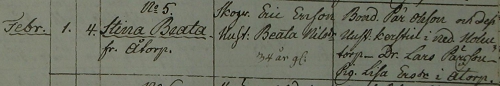 No 5.
Febr. 1. 4. Stina Beata
fr. Åtorp.
Skogv. Eric Ericson
Hust. Beata Nilsd
34 år gl.
Bond. Pär Olsson och dess
Hust. Kerstin i Ned
torp – Dr. Lars Pärsson
Pig. Lisa Ersd. i Åtorp.